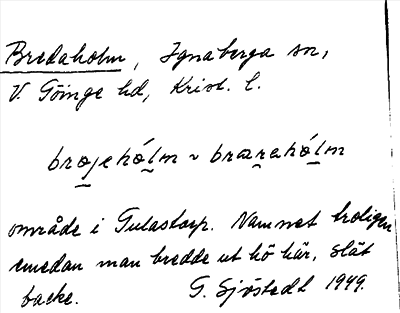 Bredaholm, Ignaberga sn,
V. Göinge hd, Krist. l.
brøjehólm ~ brærahólm
område i Gulastorp. Namnet troligen
emedan man bredde ut hö här, slät
backe. G. Sjöstedt 1949.